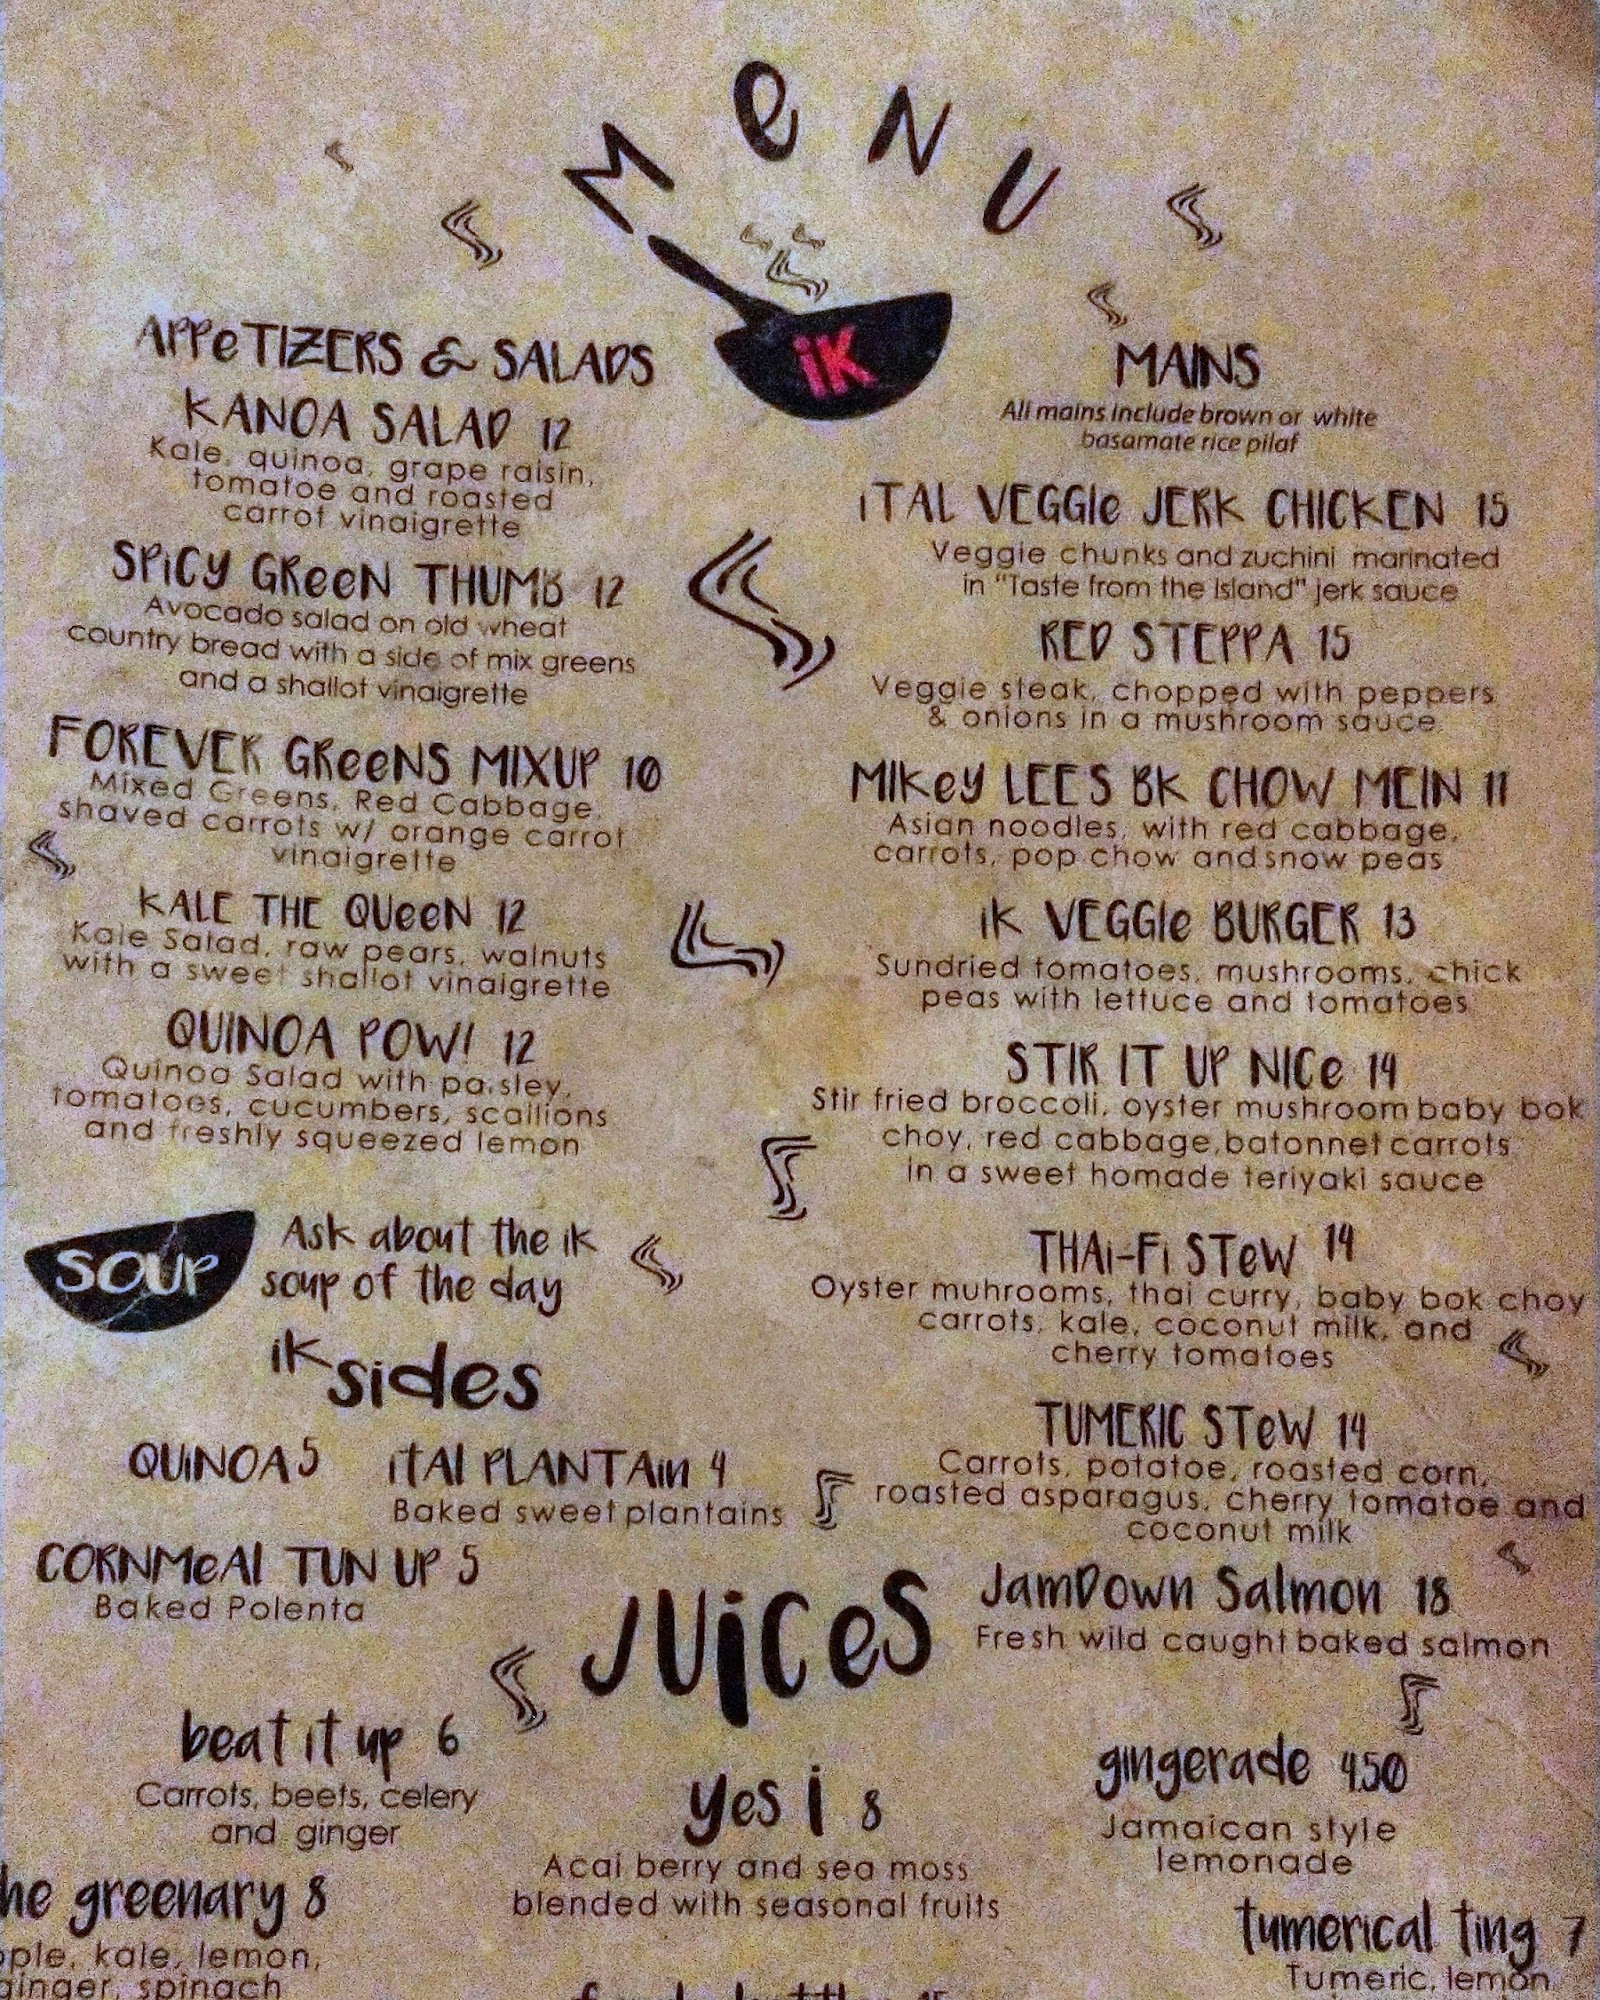 MeNU
iK
APPeTIZERS & SALADS
KANOA SALAD 12
Kale, quinoa, grape raisin,
tomatoe and roasted
carrot vinaigrette
SPiCY GReeN THUMB 12
Avocado salad on old wheat
country bread with a side of mix greens
and a shallot vinaigrette
FOREVER GReeNS MIXUP 10
Mixed Greens, Red Cabbage,
shaved carrots w/ orange carrot
vinaigrette
KALE THE QUeeN 12
Kale Salad, raw pears, walnuts
with a sweet shallot vinaigrette
QUINOA POW! 12
Quinoa Salad with paisley,
tomatoes, cucumbers, scallions
and freshly squeezed lemon
SOUP
Ask about the ik
soup of the day
ik sides
QUiNOA 5
iTAl PLANTAin 4
Baked sweet plantains
CORNMeAl TUN UP 5
Baked Polenta
MAINS
All mains include brown or white
basamate rice pilaf
iTAL VEGGIe JERK CHICKEN 15
Veggie chunks and zuchini marinated
in "Taste from the Island" jerk sauce
RED STEPPA 15
Veggie steak, chopped with peppers
& onions in a mushroom sauce.
MIKey LEES BK CHOW MEIN 11
Asian noodles, with red cabbage,
carrots, pop chow and snow peas
iK VEGGIe BURGER 13
Sundried tomatoes, mushrooms, chick
peas with lettuce and tomatoes
STIR IT UP NICe 14
Stir fried broccoli, oyster mushroom baby bok
choy, red cabbage, batonnet carrots
in a sweet homade teriyaki sauce
THAi-Fi STeW 14
Oyster muhrooms, thai curry, baby bok choy
carrots, kale, coconut milk, and
cherry tomatoes
TUMERIC STeW 14
Carrots, potatoe, roasted corn,
roasted asparagus, cherry tomatoe and
coconut milk
JamDown Salmon 18
Fresh wild caught baked salmon
JUiCeS
beat it up 6
Carrots, beets, celery
and ginger
he greenary 8
ple, kale, lemon,
ginger, spinach
yes i 8
Acai berry and sea moss
blended with seasonal fruits
gingerade 4.50
Jamaican style
lemonade
tumerical ting 7
Tumeric, lemon